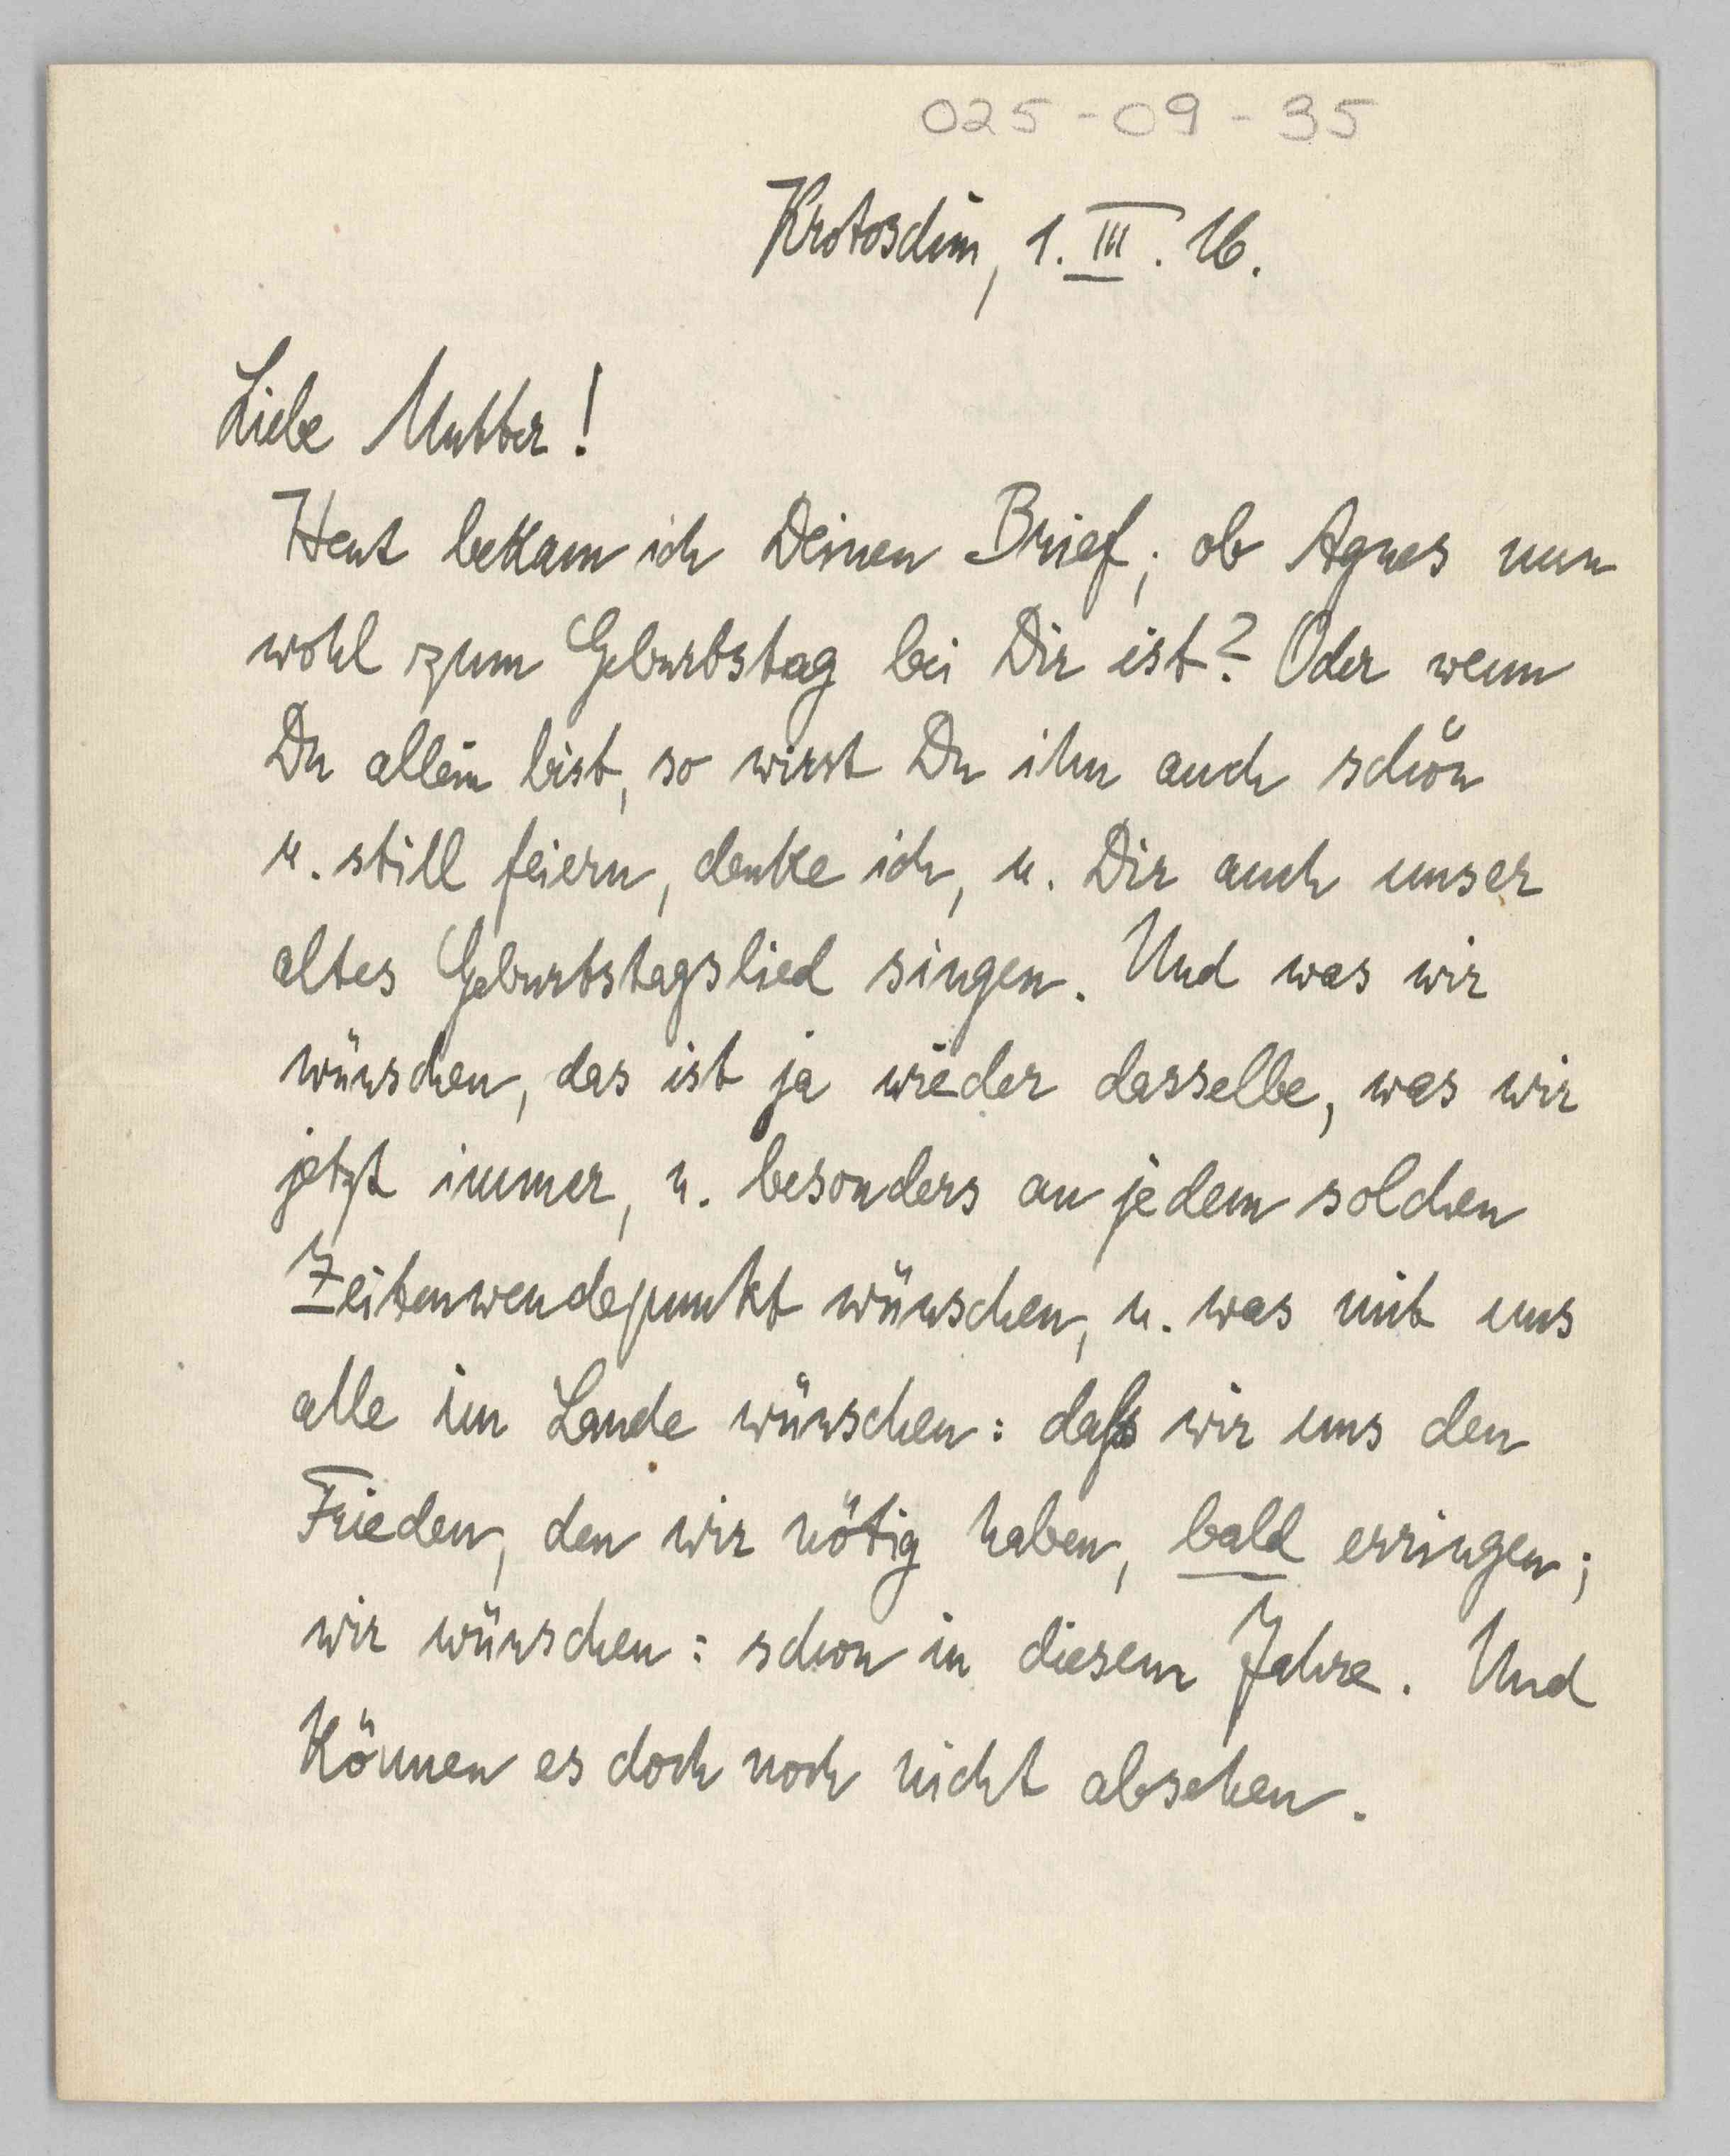 025-09-35
Krotoschin, 1. III. 16.
Liebe Mutter!
Heut bekam ich Deinen Brief; ob Agnes nun
wohl zum Geburtstag bei Dir ist? Oder wenn
Du allein bist, so wirst Du ihn auch schön
u. still feiern, denke ich, u. Dir auch unser
altes Geburtstagslied singen. Und was wir
wünschen, das ist ja wieder dasselbe, was wir
jetzt immer, u. besonders an jedem solchen
Zeitenwendepunkt wünschen, u. was mit uns
alle im Lande wünschen: daß wir uns den
Frieden, den wir nötig haben, bald erringen;
wir wünschen: schon in diesem Jahre. Und
können es doch noch nicht absehen.